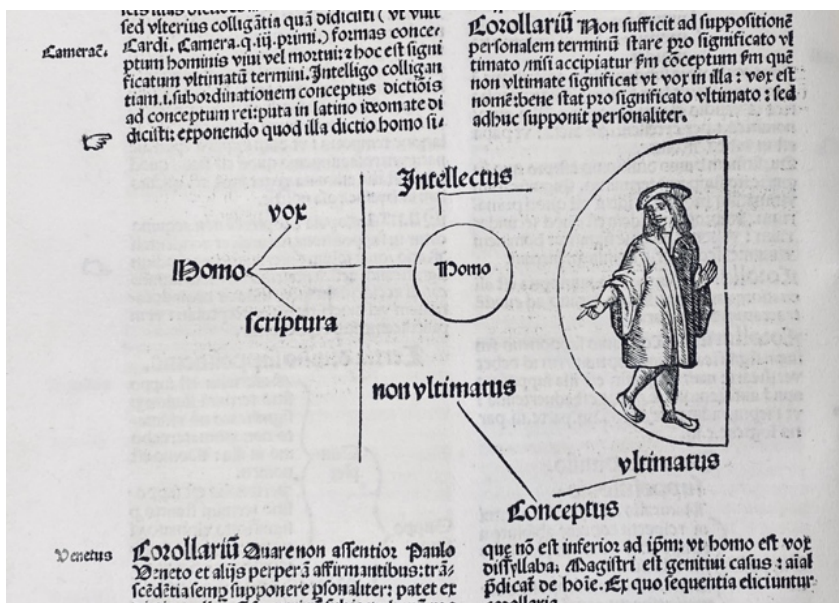 sed vlterius colligãtia quã didicisti (vt vult
Camerac̃.
Cardi. Camera.q.iij.primi.) formas conce-
ptum hominis viui vel mortui: ⁊ hoc est signi
ficatum vltimatũ termini. Intelligo colligan
tiam.i.subordinationem conceptus dictiõis
ad conceptum rei: puta in latino ideomate di
dicisti: exponendo quod illa dictio homo si-
Corollariũ Non sufficit ad suppositionẽ
personalem terminũ stare pro significato vl
timato/nisi accipiatur fm cõceptum fm quẽ
non vltimate significat vt vox in illa: vox est
nomẽ: bene stat pro significato vltimato: sed
adhuc supponit personaliter.
Intellectus
vox
Homo
Homo
scriptura
non vltimatus
vltimatus
Conceptus
Venetus
Corollariũ Quare non assentior Paulo
Veneto et alijs perperã affirmantibus: trã-
scẽdẽtia semp supponere psonaliter: patet ex
que nõ est inferior ad ipm: vt homo est vox
dissyllaba. Magistri est genitiui casus: aial
pdicat̃ de hoie. Ex quo sequentia eliciuntur